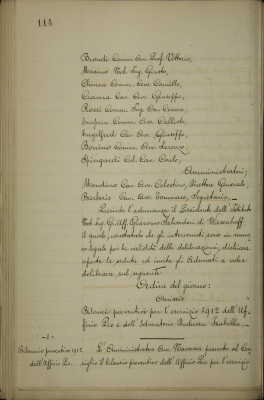 114
Brondi Comm. Avv. Prof. Vittorio,
Masino Nob. Ing. Giusto,
Chinea Comm. Avv. Camillo,
Cravosa Cav. Avv. Giuseppe,
Rossi Comm. Ing. Cesare,
Comm. Avv. Callisto,
Engelfred Cav. Avv. Giuseppe,
Bonino Comm. Avv. Lorenzo,
Spingardi Col. Cav. Carlo,
Amministratori;
Mondino Cav. Avv. Celestino, Direttore Generale,
Barberis Cav. Avv. Tommaso, Segretario,
Presiede l'adunanza il Presidente dell'Istituto
Nob. Ing. G. Uff. Giovanni Salvadori di Wiesenhoff
il quale, constatato che gli intervenuti sono in nume-
ro legale per la validità delle deliberazioni, dichiara
aperta la seduta ed invita gli Adunati a voler
deliberare sul seguente
Ordine del giorno:
Omissis
Bilanci preventivi per l'esercizio 1912 dell'Uf-
ficio Pio e dell'Educatorio Duchessa Isabella.
-2-
Bilancio preventivo 1912
dell'Ufficio Pio.
L'Amministratore Avv. presenta al Con-
siglio il bilancio preventivo dell'Ufficio Pio per l'esercizio